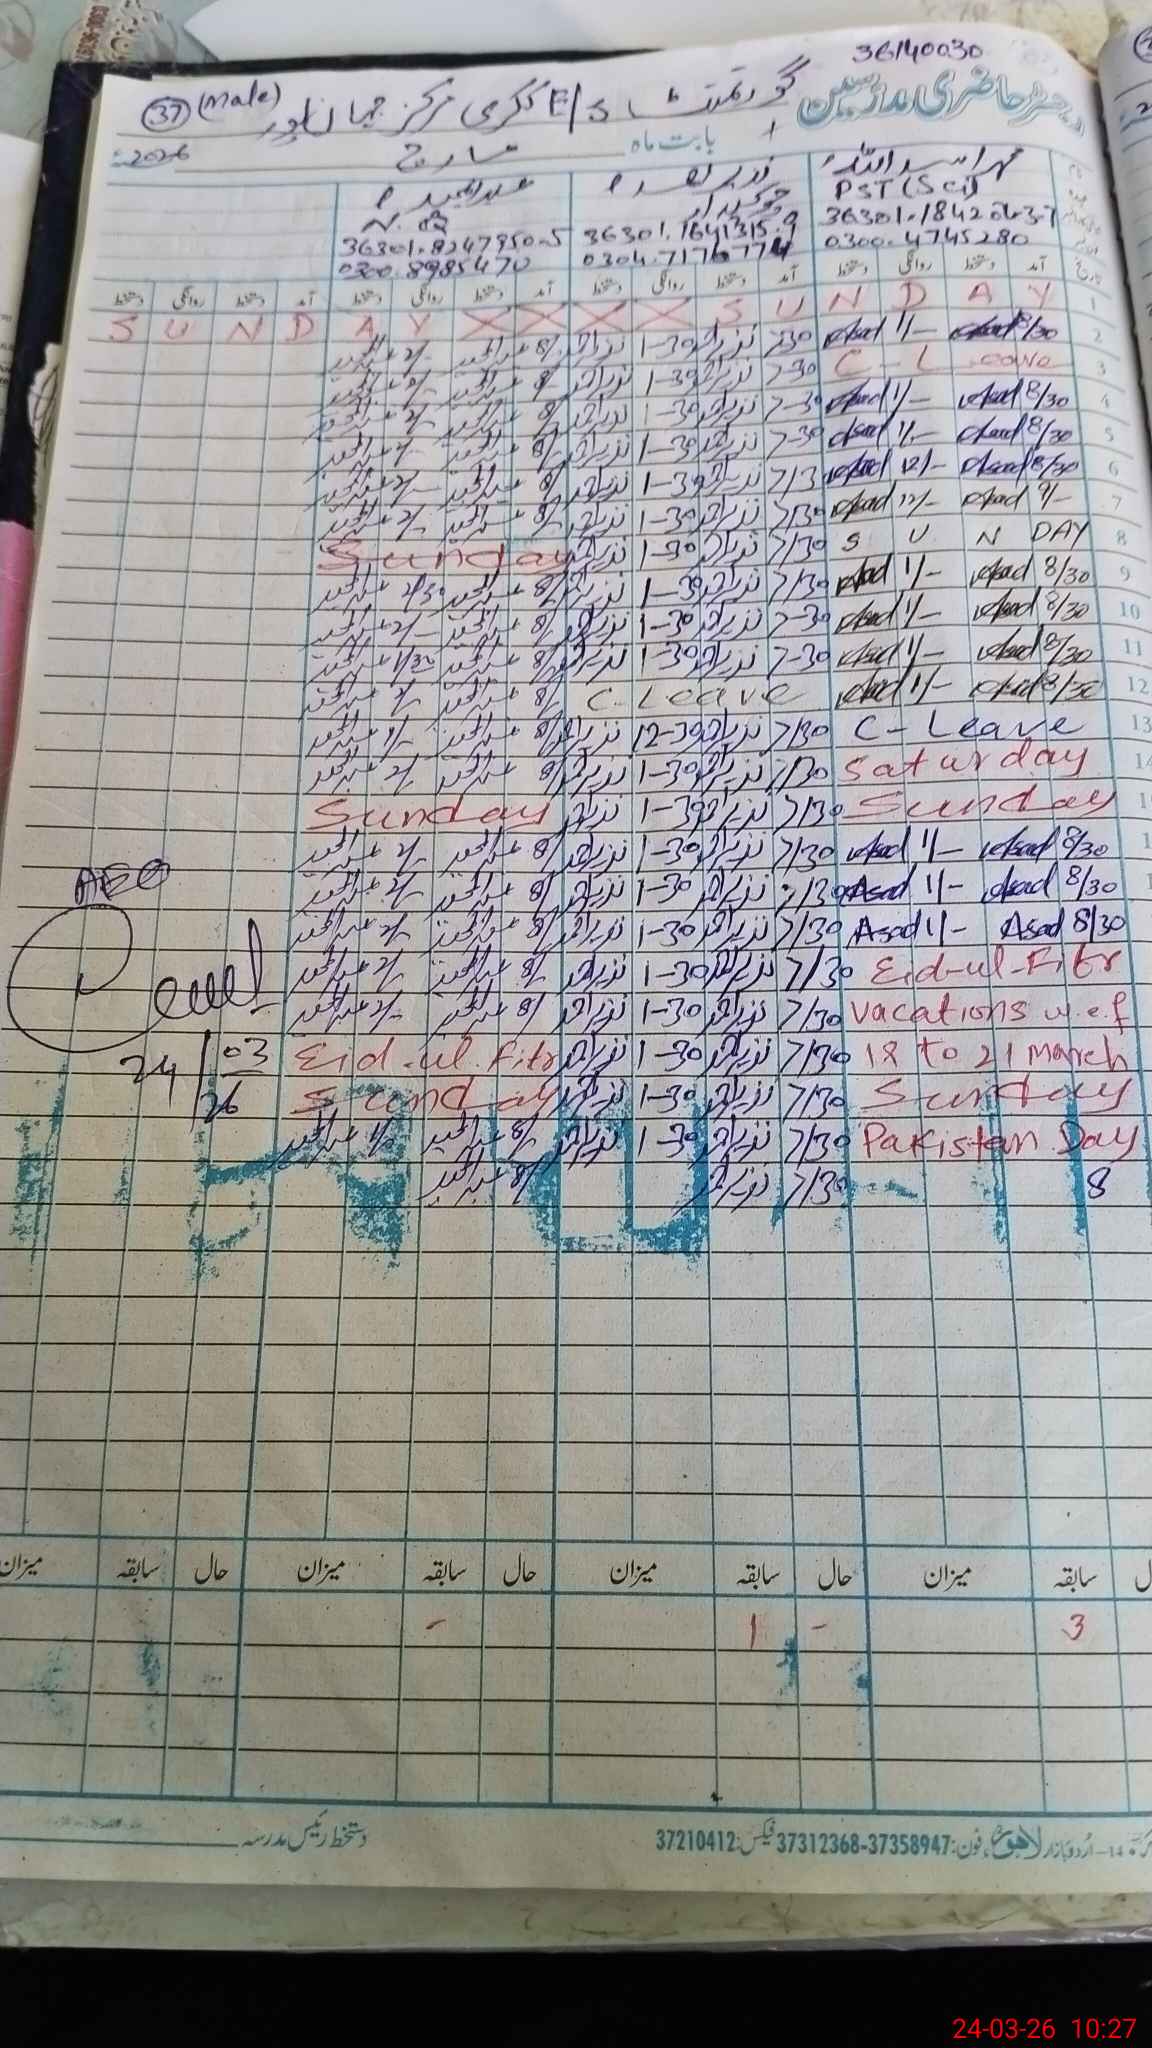 36140030
رجسٹر حاضری مدرسین
(Male) 37
گورنمنٹ E/S ککری مرکز جہانپور
بابت ماہ مارچ 2026ء
مہر اسد اللہ
PST (Sci)
0300.4745280
نذیر احمد
چوکیدار
36301.1641315.9
0304.7176774
عبدالمجید
36301.8247950-5
0300.8985470
آمد دستخط روانگی دستخط آمد دستخط روانگی دستخط آمد دستخط روانگی دستخط آمد دستخط روانگی دستخط
1 S U N D A Y X X X X S U N D A Y
2 Asad 8/30 Asad 1/- 7-30 نذیر احمد 1-30 نذیر احمد 8/- عبدالمجید 2/- عبدالمجید
3 C-Leave 7-30 نذیر احمد 1-30 نذیر احمد 8/- عبدالمجید 2/- عبدالمجید
4 Asad 8/30 Asad 1/- 7-30 نذیر احمد 1-30 نذیر احمد 8/- عبدالمجید 2/- عبدالمجید
5 Asad 8/30 Asad 1/- 7-30 نذیر احمد 1-30 نذیر احمد 8/- عبدالمجید 2/- عبدالمجید
6 Asad 8/30 Asad 12/- 7/30 نذیر احمد 1-30 نذیر احمد 8/- عبدالمجید 2/- عبدالمجید
7 Asad 9/- Asad 12/- 7/30 نذیر احمد 1-30 نذیر احمد 8/- عبدالمجید 2/- عبدالمجید
8 S U N DAY 7/30 نذیر احمد 1-30 نذیر احمد Sunday
9 Asad 8/30 Asad 1/- 7/30 نذیر احمد 1-30 نذیر احمد 8/- عبدالمجید 2/30 عبدالمجید
10 Asad 8/30 Asad 1/- 7-30 نذیر احمد 1-30 نذیر احمد 8/- عبدالمجید 2/- عبدالمجید
11 Asad 8/30 Asad 1/- 7-30 نذیر احمد 1-30 نذیر احمد 8/- عبدالمجید 1/30 عبدالمجید
12 Asad 8/30 Asad 1/- C-Leave 8/- عبدالمجید 2/- عبدالمجید
13 C-Leave 7/30 نذیر احمد 12-30 نذیر احمد 8/- عبدالمجید عبدالمجید
Saturday 7/30 نذیر احمد 1-30 نذیر احمد 8/- عبدالمجید 2/- عبدالمجید
Sunday 7/30 نذیر احمد 1-30 نذیر احمد Sunday
Asad 8/30 Asad 1/- 7/30 نذیر احمد 1-30 نذیر احمد 8/- عبدالمجید 2/- عبدالمجید
Asad 8/30 Asad 1/- 7/30 نذیر احمد 1-30 نذیر احمد 8/- عبدالمجید 2/- عبدالمجید
Asad 8/30 Asad 1/- 7/30 نذیر احمد 1-30 نذیر احمد 8/- عبدالمجید 2/- عبدالمجید
Eid-ul-Fitr 7/30 نذیر احمد 1-30 نذیر احمد 8/- عبدالمجید 2/- عبدالمجید
Vacations w.e.f 7/30 نذیر احمد 1-30 نذیر احمد 8/- عبدالمجید 2/- عبدالمجید
18 to 21 March 7/30 نذیر احمد 1-30 نذیر احمد Eid-ul-Fitr
Sunday 7/30 نذیر احمد 1-30 نذیر احمد Sunday
Pakistan Day 7/30 نذیر احمد 1-30 نذیر احمد 8/- عبدالمجید عبدالمجید
8 7/30 نذیر احمد 8/- عبدالمجید
AEO
24/03/26
سابقہ میزان حال سابقہ میزان حال سابقہ میزان حال سابقہ میزان
3 - 1 -
14-اُردو بازار لاہور، فون: 37358947-37312368 فیکس: 37210412
دستخط رئیس مدرسہ
24-03-26 10:27